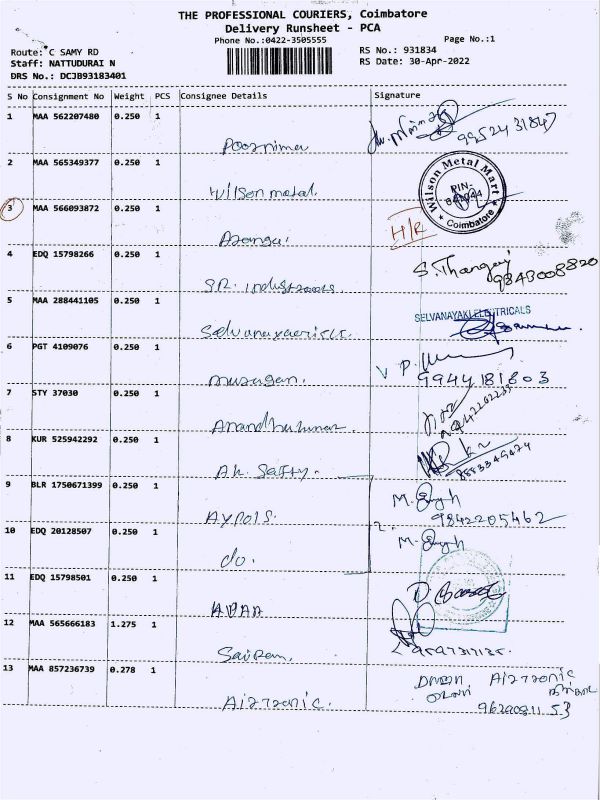 THE PROFESSIONAL COURIERS, Coimbatore
Delivery Runsheet - PCA
Phone No.:0422-3505555
Page No.:1
Route: C SAMY RD
RS No.: 931834
Staff: NATTUDURAI N
RS Date: 30-Apr-2022
DRS No.: DCJB93183401
S No Consignment No Weight PCS Consignee Details Signature
1 MAA 562207480 0.250 1
Poornima 9952431847
2 MAA 565349377 0.250 1
Wilson metal. Wilson Metal Mart PIN- Coimbatore
3 MAA 566093872 0.250 1
H/R
4 EDQ 15798266 0.250 1
SR. S. Thangaj 9843008820
5 MAA 288441105 0.250 1
SELVANAYAKI ELECTRICALS
6 PGT 4109076 0.250 1
murugan. V P. 9944181803
7 STY 37030 0.250 1
Anandhakumar
8 KUR 525942292 0.250 1
AK. Safty. 8883349474
9 BLR 1750671399 0.250 1
M. 9842205462
10 EDQ 20128507 0.250 1
do. 2. M.
11 EDQ 15798501 0.250 1
12 MAA 565666183 1.275 1
Sairam.
13 MAA 857236739 0.278 1
Airtronic. Airtronic